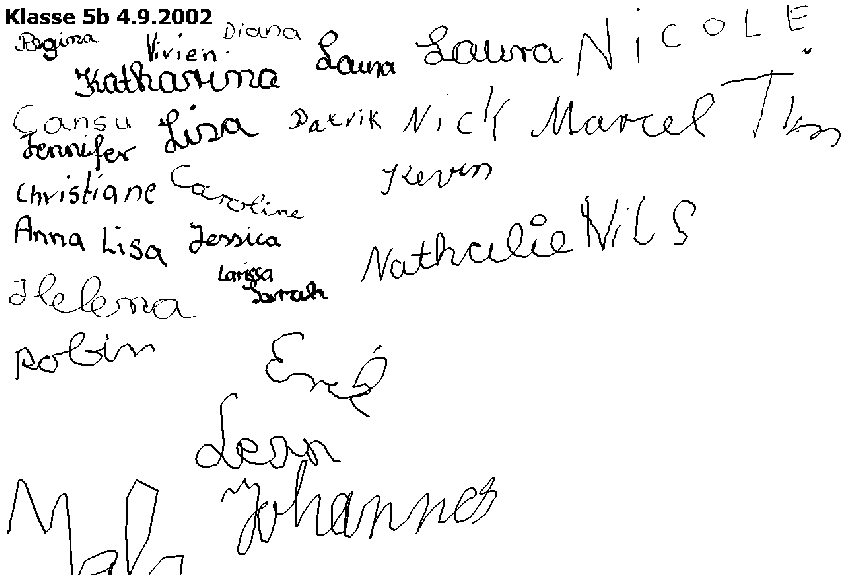 Klasse 5b 4.9.2002
Regina Vivien Diana Laura Laura NICOLE
Katharina
Cansu Lisa Patrik Nick Marcel Tim
Jennifer
Christiane Caroline Kevin
Anna Lisa Jessica Nathalie NilS
Larissa
Helena Sarah
Robin
Lean
Johannes